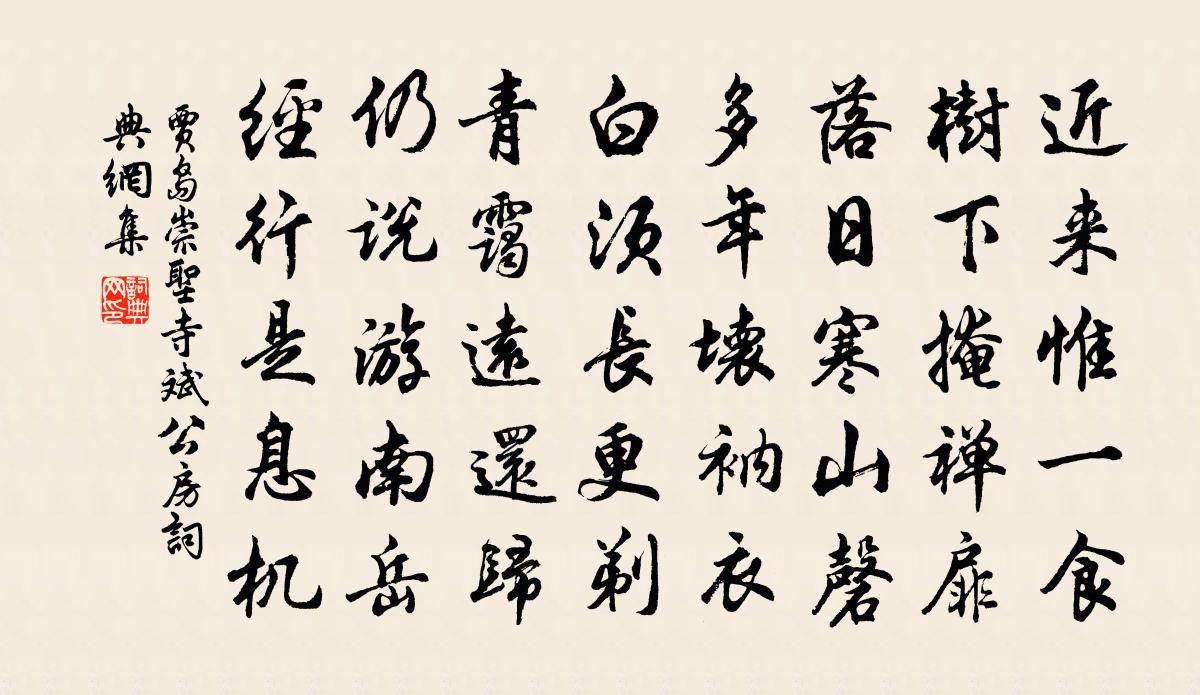 近来惟一食
樹下掩禅扉
落日寒山磬
多年壊衲衣
白须長更剃
青靄遠還歸
仍说游南岳
經行是息机
賈島崇聖寺斌公房詞
典網集
詞典
网印